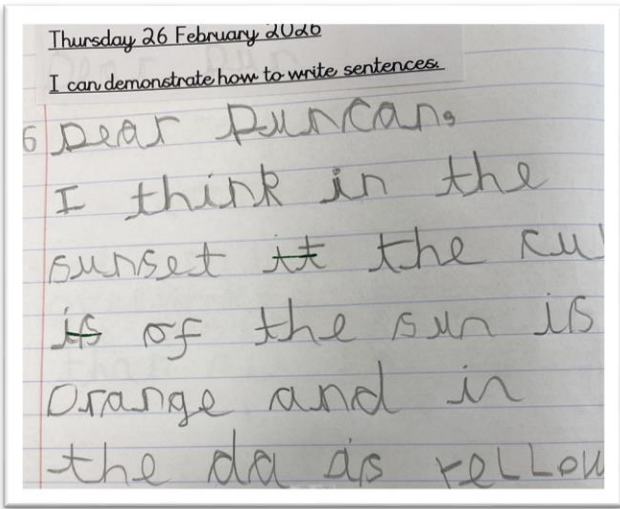 Thursday 26 February 2026
I can demonstrate how to write sentences.
6 Dear Duncan,
I think in the
sunset it the cu
is of the sun is
Orange and in
the da is yellow